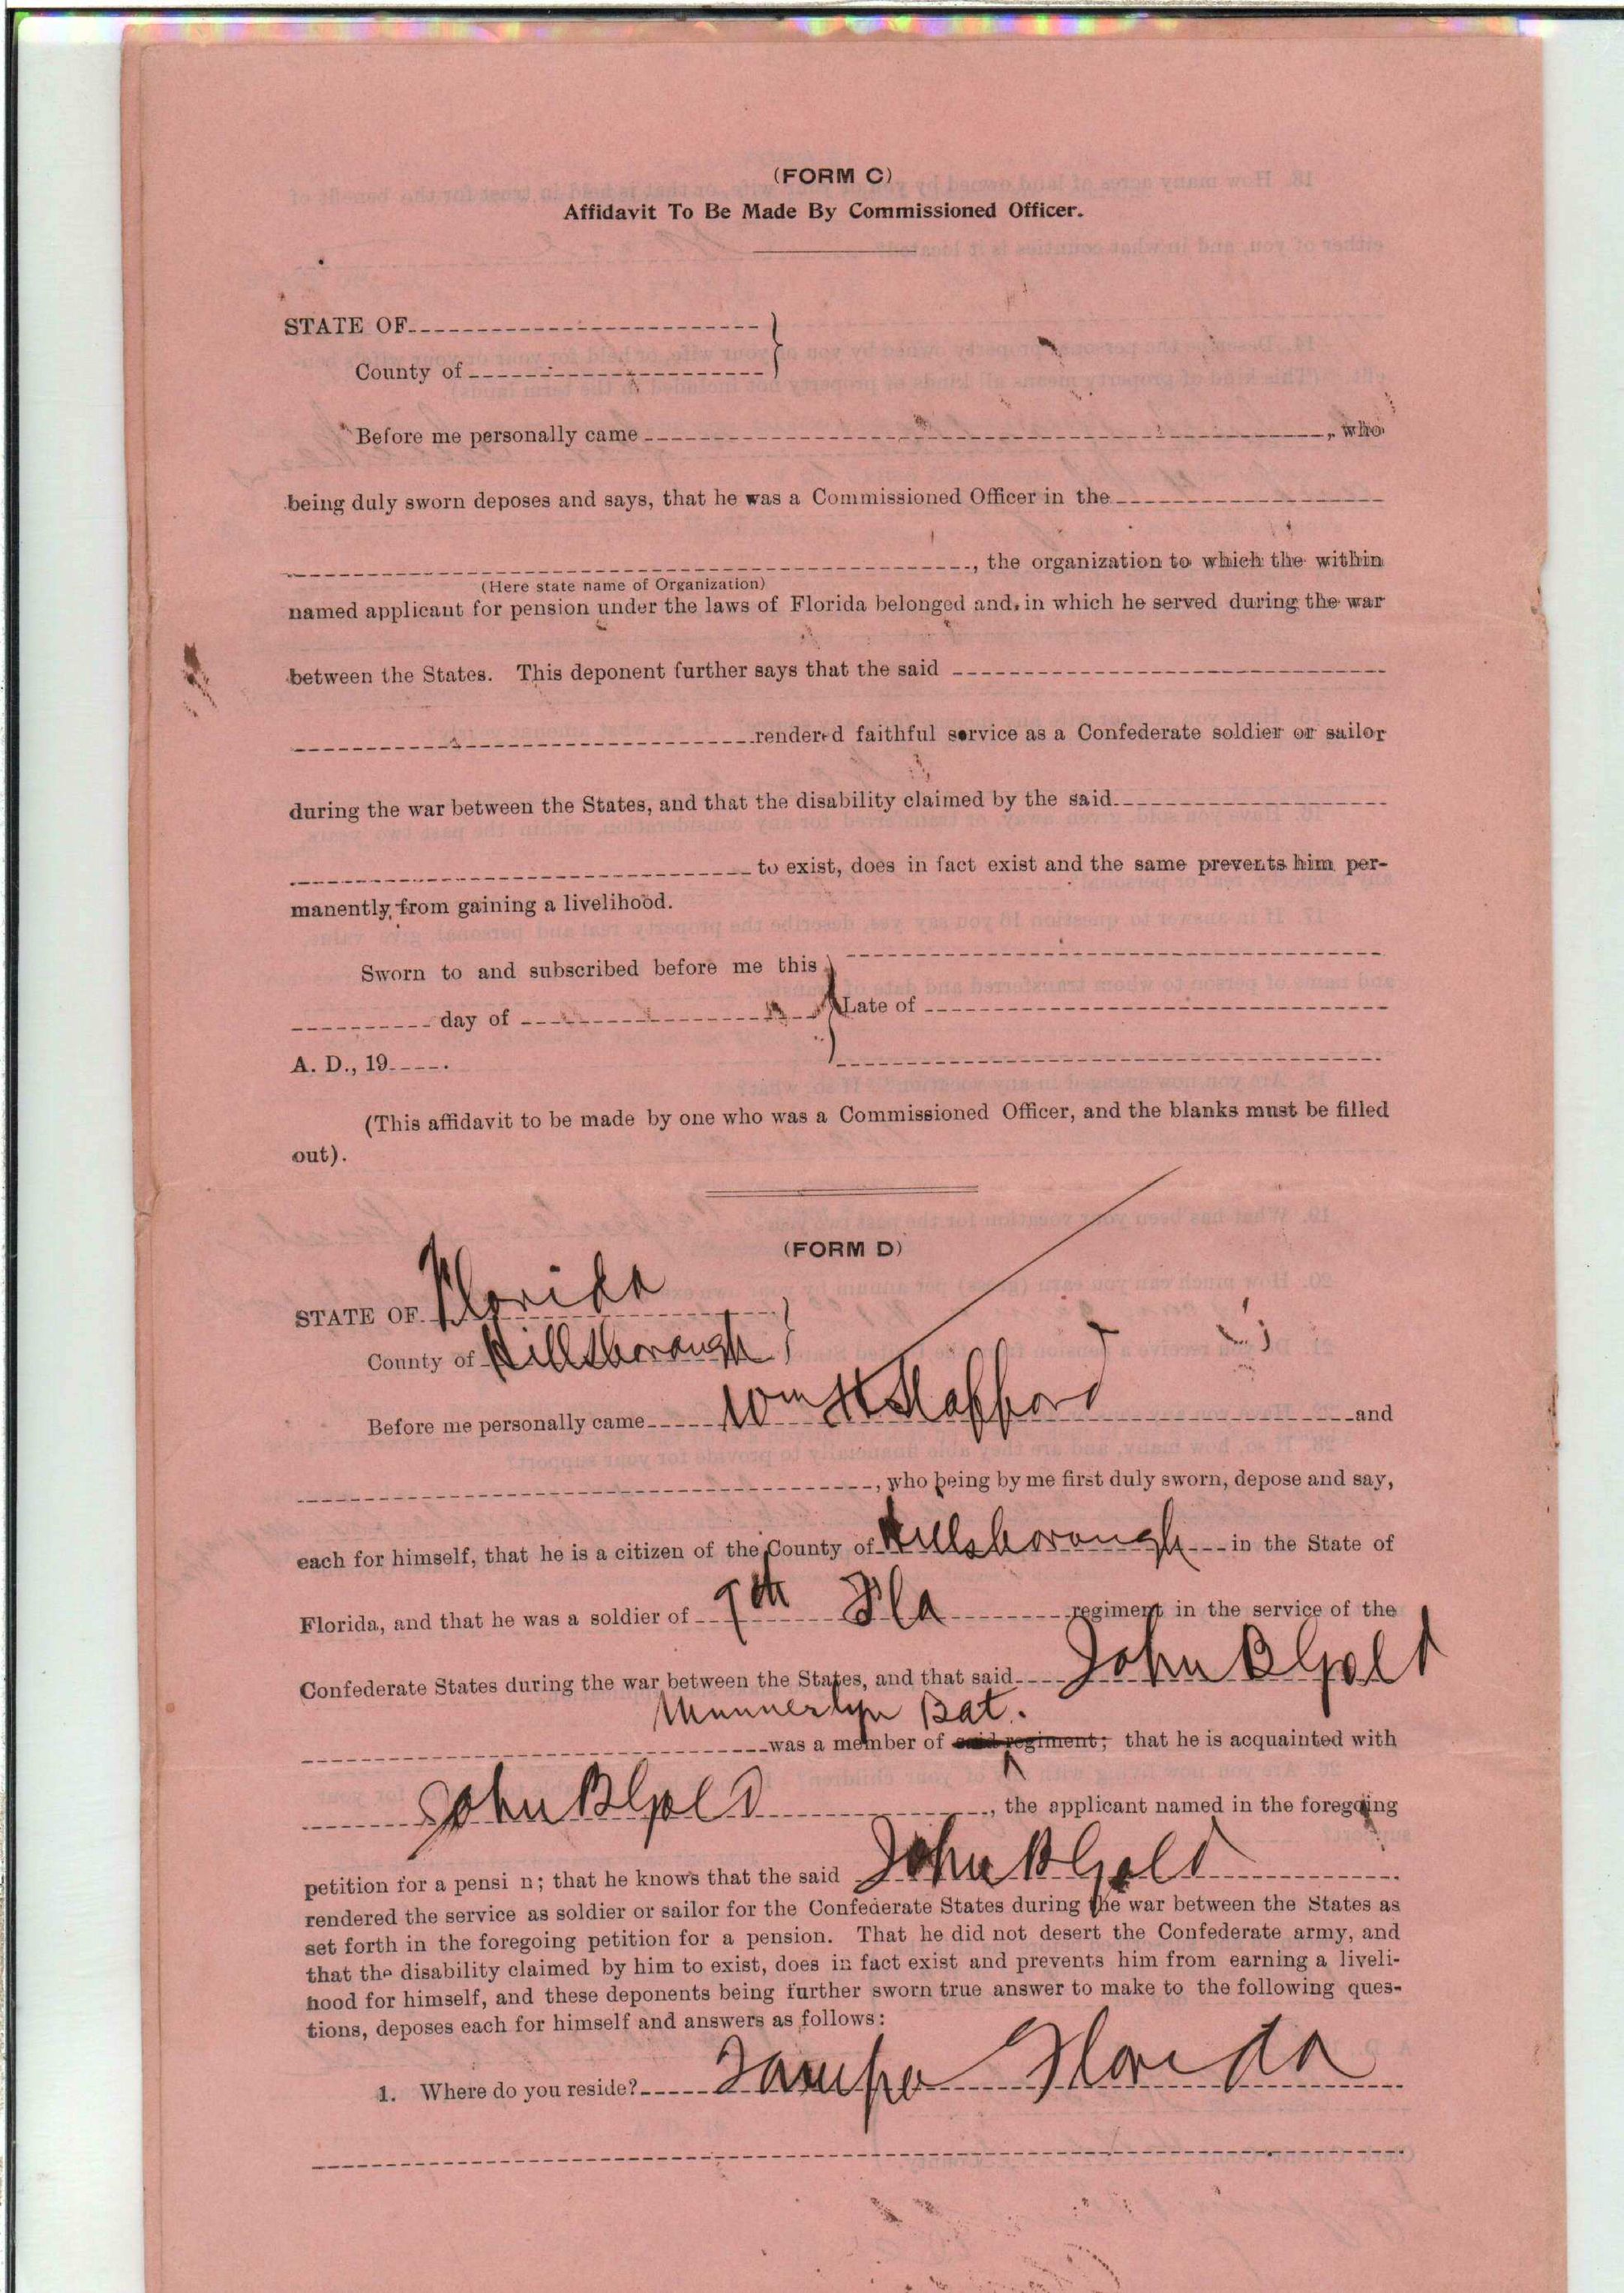 (FORM C)
Affidavit To Be Made By Commissioned Officer.
STATE OF
County of
Before me personally came , who
being duly sworn deposes and says, that he was a Commissioned Officer in the
, the organization to which the within
(Here state name of Organization)
named applicant for pension under the laws of Florida belonged and, in which he served during the war
between the States. This deponent further says that the said
rendered faithful service as a Confederate soldier or sailor
during the war between the States, and that the disability claimed by the said
to exist, does in fact exist and the same prevents him per-
manently from gaining a livelihood.
Sworn to and subscribed before me this
day of Late of
A. D., 19 .
(This affidavit to be made by one who was a Commissioned Officer, and the blanks must be filled
out).
(FORM D)
STATE OF Florida
County of Hillsborough
Before me personally came Wm H and
, who being by me first duly sworn, depose and say,
each for himself, that he is a citizen of the County of Hillsborough in the State of
Florida, and that he was a soldier of Fla regiment in the service of the
Confederate States during the war between the States, and that said John B Gold
Munnerlyn Bat.
was a member of said regiment; that he is acquainted with
John B Gold , the applicant named in the foregoing
petition for a pensi n; that he knows that the said John B Gold
rendered the service as soldier or sailor for the Confederate States during the war between the States as
set forth in the foregoing petition for a pension. That he did not desert the Confederate army, and
that the disability claimed by him to exist, does in fact exist and prevents him from earning a liveli-
hood for himself, and these deponents being further sworn true answer to make to the following ques-
tions, deposes each for himself and answers as follows:
1. Where do you reside? Tampa Florida